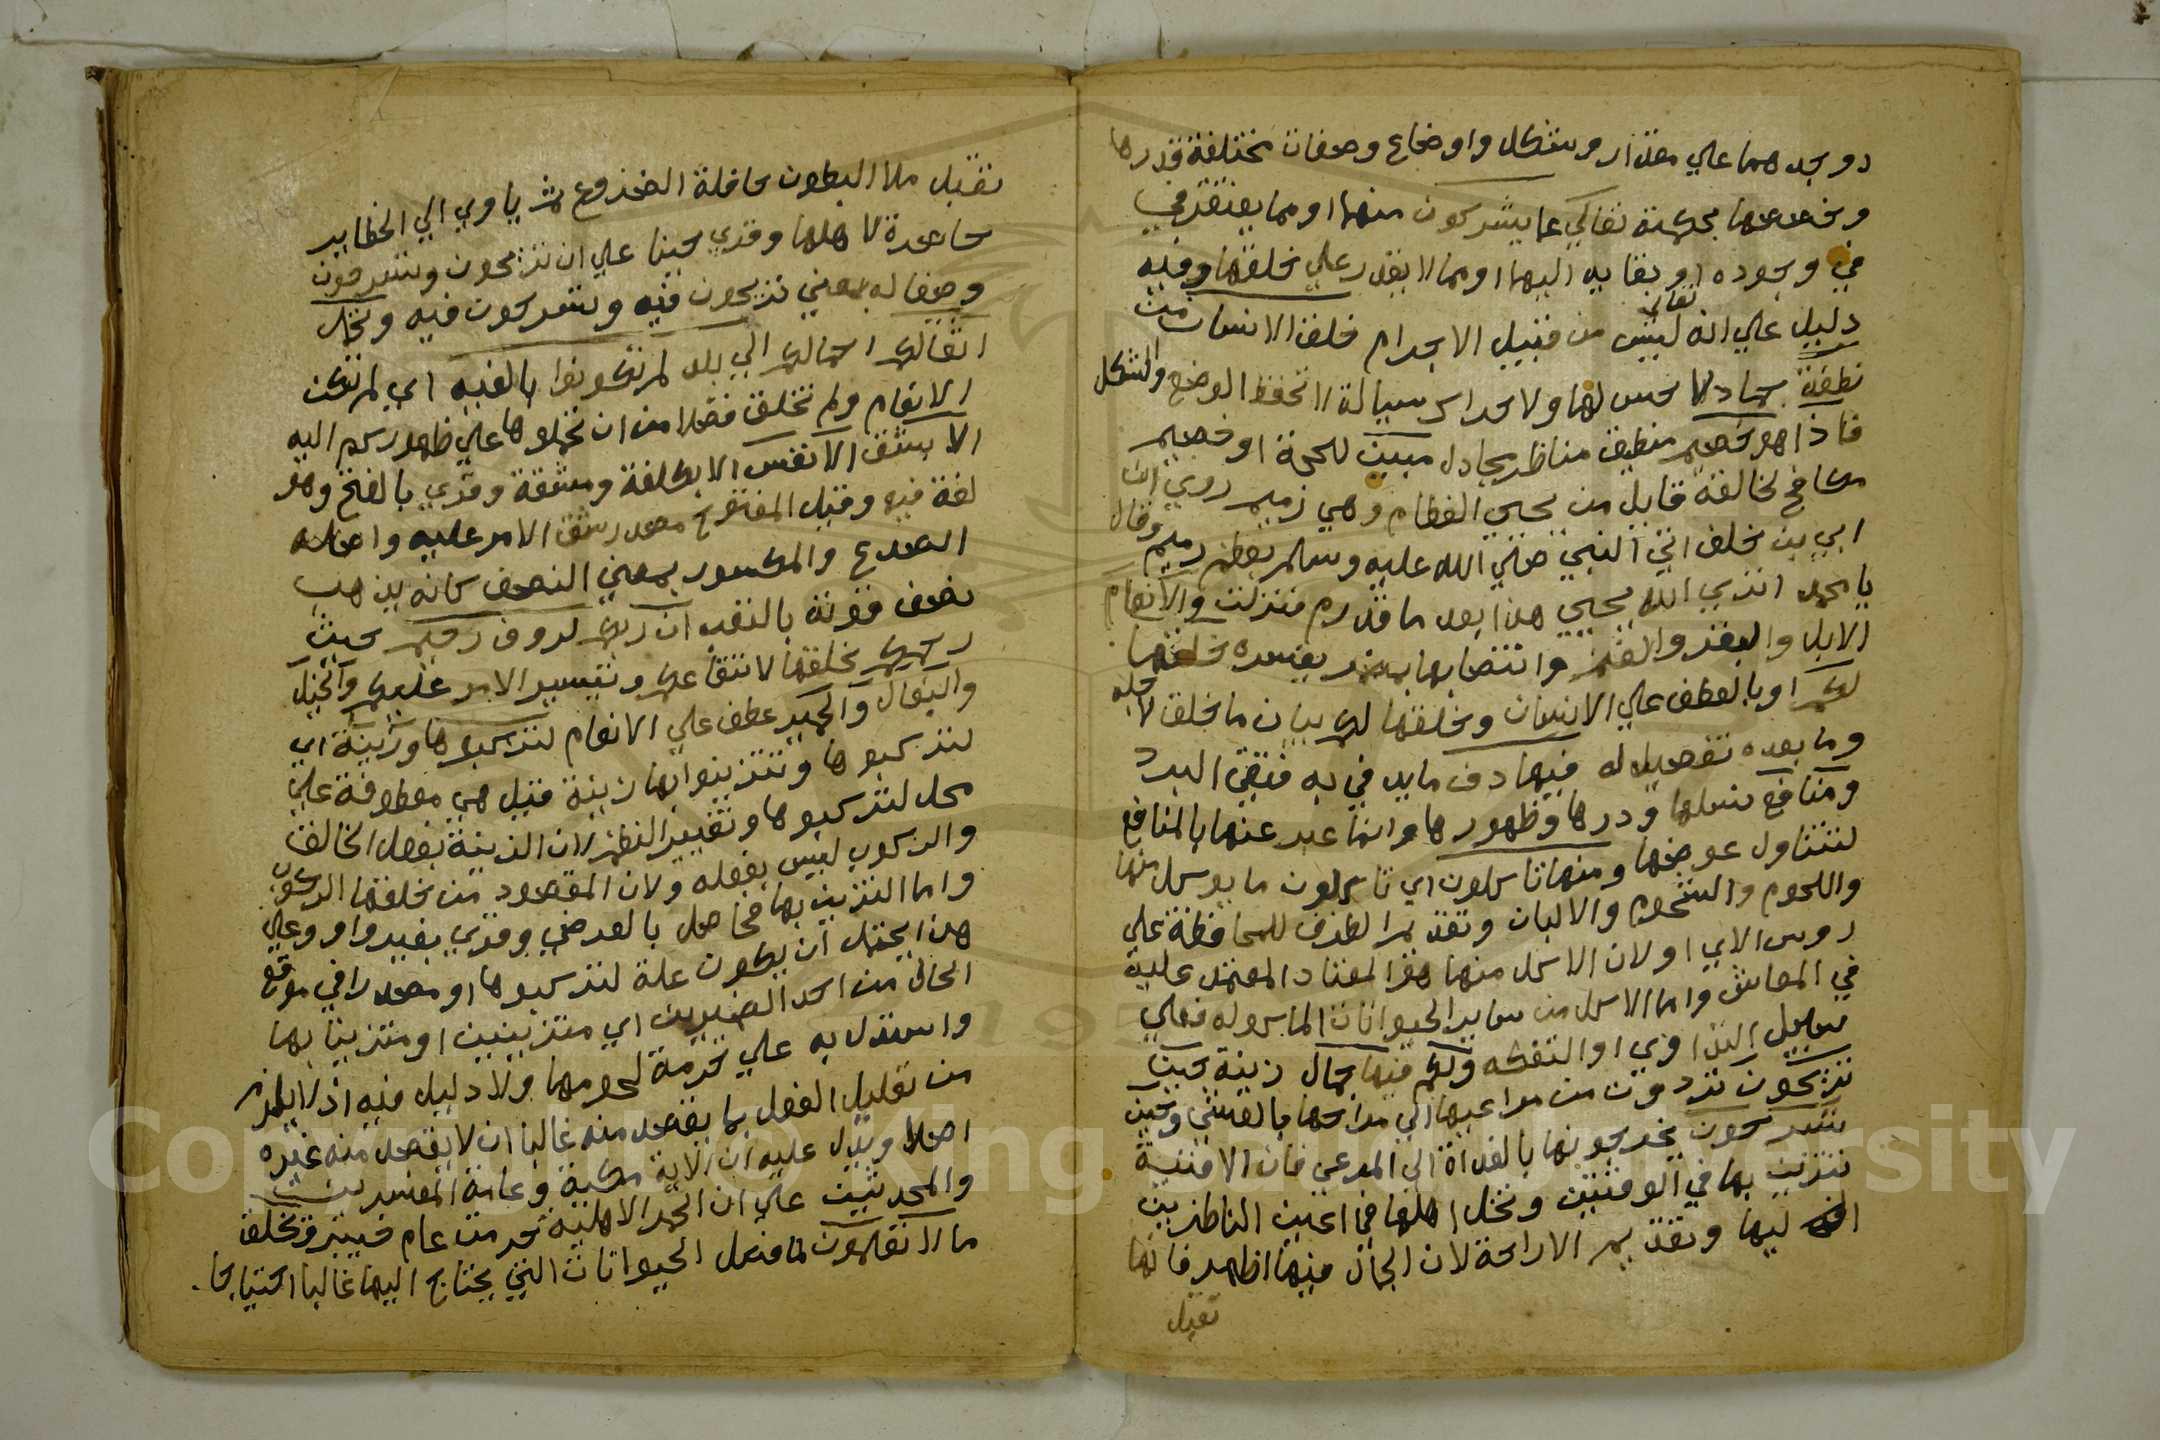 دوجدهما علي مقدار وشكل واوضاع وصفات مختلفة قدرها
وخصصها بحكمته تعالي عما يشركون منها او مما يفتقر في
في وجوده او بقايه اليها او مما لا يقدر علي خلقها وفيه
دليل علي انه تعالي ليس من قبيل الاجرام خلق الانسان من
نطفة جماد لا حس لها ولا حراك سيالة لا تحفظ الوضع والشكل
فاذا هو خصيم منطيق مناظر مجادل مبين للحجة او خصيم
مكافح لخالقه قايل من يحيي العظام وهي رميم روي ان
ابي بن خلف اتي النبي صلي الله عليه وسلم بعظم رميم وقال
يا محمد اتري الله يحيي هذا بعد ما قد رم فنزلت والانعام
الابل والبقر والغنم وانتصابها بمضمر يفسره خلقها
لكم او بالعطف علي الانسان وخلقها لكم بيان ما خلق لاجله
وما بعده تفصيل له فيها دف ما يدفي به فيقي البرد
ومنافع نسلها ودرها وظهورها وانما عبر عنها بالمنافع
لتتناول عوضها ومنها تاكلون اي تاكلون ما يوكل منها
واللحوم والشحوم والالبان وتقديم الظرف للمحافظة علي
روس الاي او لان الاكل منها هو المعتاد المعتمد عليه
في المعاش واما الاكل من ساير الحيوانات الماكوله فعلي
سبيل التداوي او التفكه ولكم فيها جمال زينة حين
تريحون تردون من مراعيها الي مراحها بالعشي وحين
تسرحون تخرجونها بالغداة الي المرعي فان الافنية
تتزين بها في الوقتين وتجل اهلها في اعين الناظرين
اليها وتقديم الاراحة لان الجمال فيها اظهر فانها
تقبل
تقبل ملا البطون حافلة الضروع ثم ياوي الي الحظاير
حاضرة لاهلها وقري حينا علي ان تريحون وتسرحون
وصفا له بمعني تريحون فيه وتسرحون فيه وتحمل
اثقالكم احمالكم الي بلد لم تكونوا بالغيه اي لم تكن
الانعام ولم تخلق فضلا من ان تحملوها علي ظهوركم اليه
الا بشق الانفس الا بكلفة ومشقة وقري بالفتح وهو
لغة فيه وقيل المفتوح مصدر شق الامر عليه واصله
الصدع والمكسور بمعني النصف كانه يذهب
نصف قوته بالتعب ان ربكم لروف رحيم حيث
رحمكم بخلقها لانتفاعكم وتيسير الامر عليكم والخيل
والبغال والحمير عطف علي الانعام لتركبوها وزينة اي
لتركبوها وتتزينوا بها زينة قيل هي معطوفة علي
محل لتركبوها وتغيير النظم لان الزينة بفعل الخالق
والركوب ليس بفعله ولان المقصود من خلقها الركوب
واما التزين بها فحاصل بالعرض وقري بغير واو وعلي
هذا يحتمل ان يكون علة لتركبوها او مصدرا في موقع
الحال من احد الضميرين اي متزينين او متزينا بها
واستدل به علي حرمة لحومها ولا دليل فيه اذ لا يلزم
من تعليل الفعل بما يقصد منه غالبا ان لا يقصد منه غيره
اصلا ويدل عليه ان الاية مكية وعامة المفسرين
والمحدثين علي ان الحمر الاهلية حرمت عام خيبر ويخلق
ما لا تعلمون لما فصل الحيوانات التي يحتاج اليها غالبا احتياجا